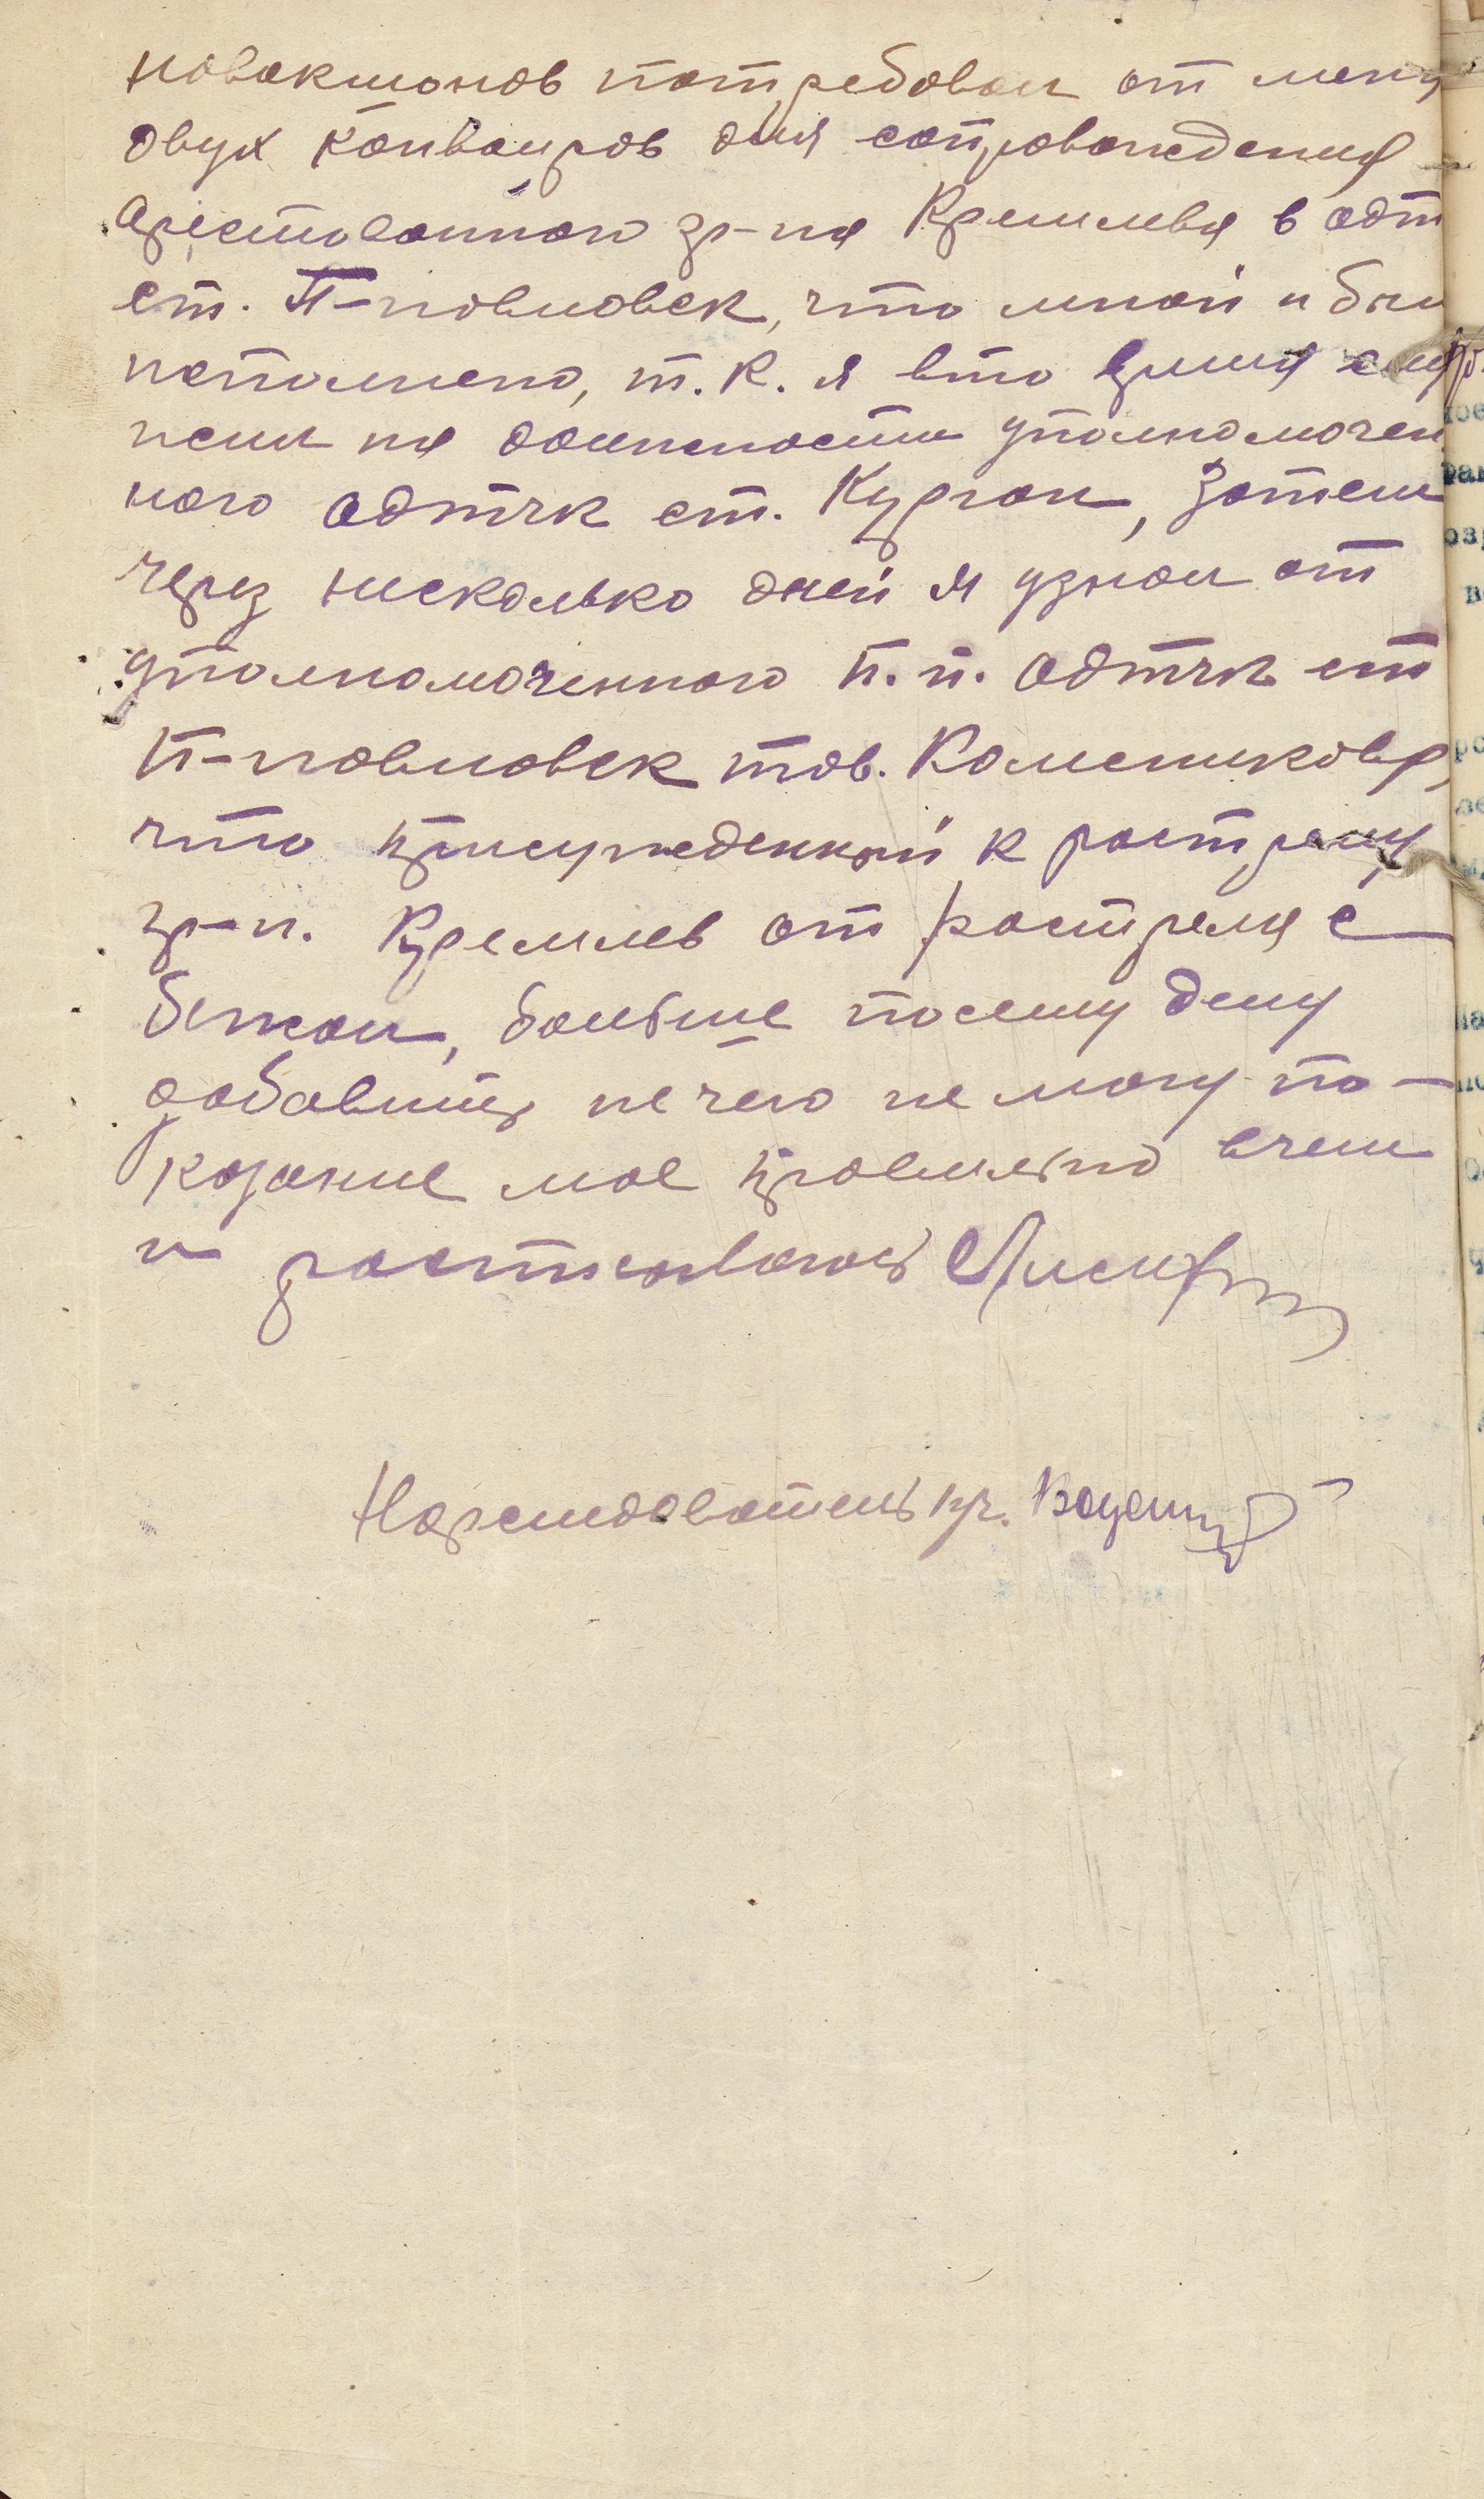 Новокшонов потребовал от меня
двух конваиров для сопровождения
арестованного гр-на Кремлева в одт
ст. П-повловск, что мной и был
исполнено, т.к. я вто время слу
жил на должности уполномочен
ного одтчк ст. Курган, Затем
через несколько дней я узнал от
уполномоченного п.п. одтчк ст
П-повловск тов. Колесникова,
что присужденный к растрелу
гр-н. Кремлев от растрела с
бежал, больше посему делу
добавить не чего не могу по-
казание мое правильно вчем
и расписываюсь
Нарследователь